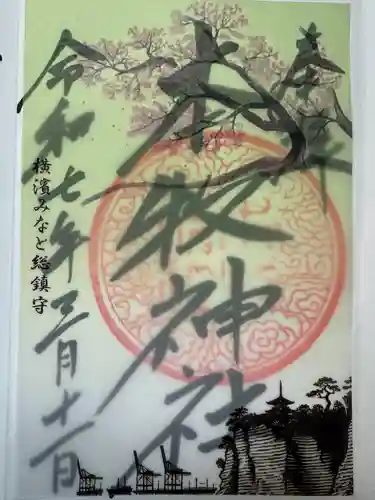 奉拝
本牧神社
横濱みなと総鎮守
令和七年三月十一日